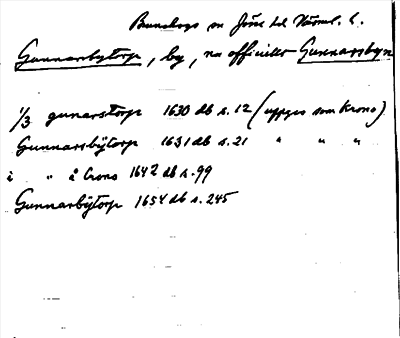 Bunskogs sn Jösse hd Värml. l.
Gunnarbytorp, by, nu officiellt Gunnarsbyn
1/3 gunarstorp 1630 db s. 12 (uppges som Krono)
Gunnarsbÿtorp 1631 db s. 21 " " "
i " å Crono 1642 db s. 99
Gunnarbÿtorp 1654 db s. 245